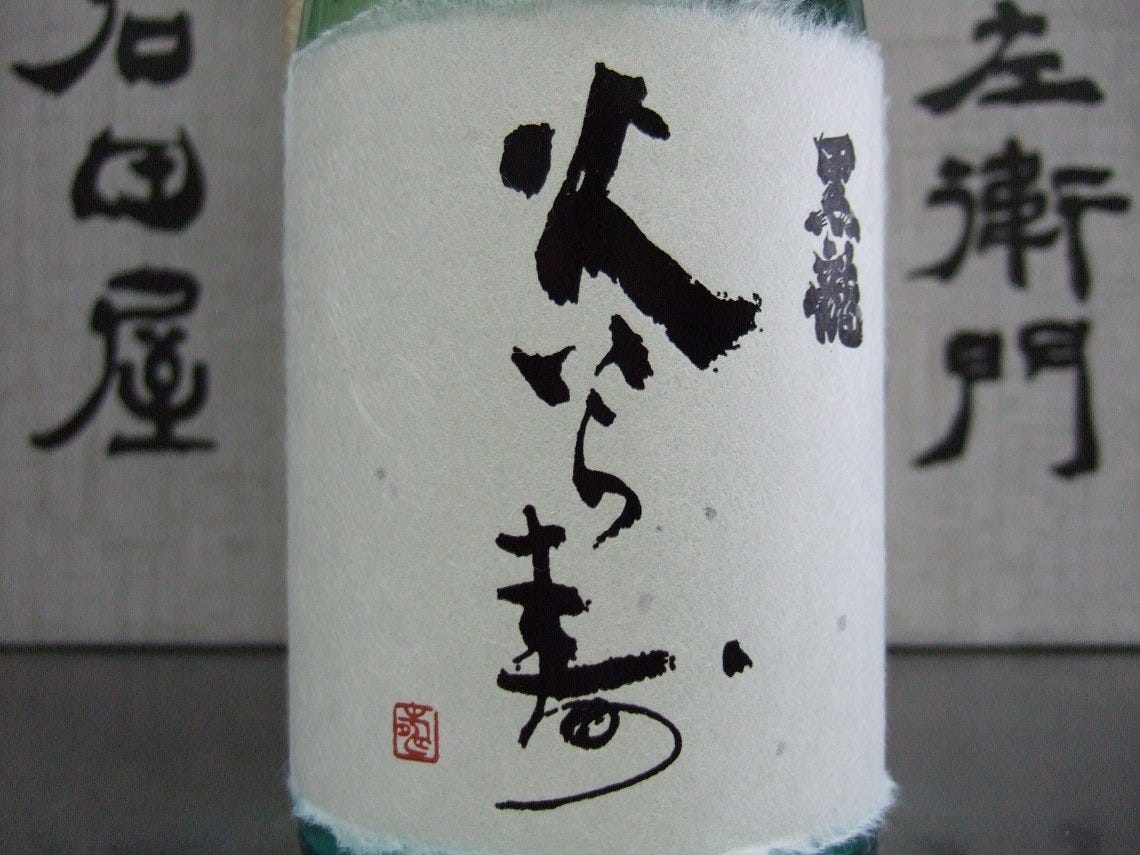 左衛門
黒龍
火いら寿
石田屋